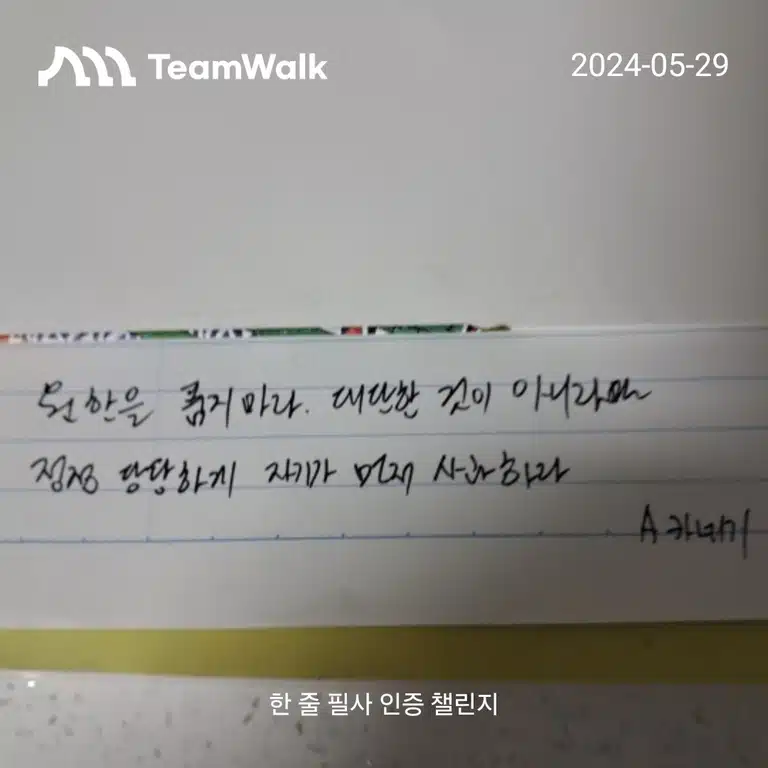 TeamWalk
2024-05-29
원한을 품지마라. 대단한 것이 아니라면
정정 당당하게 자기가 먼저 사과하라
A 카네기
한 줄 필사 인증 챌린지